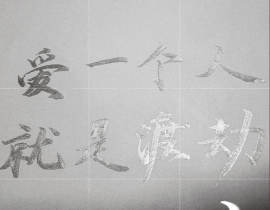 爱一个人
就是渡劫